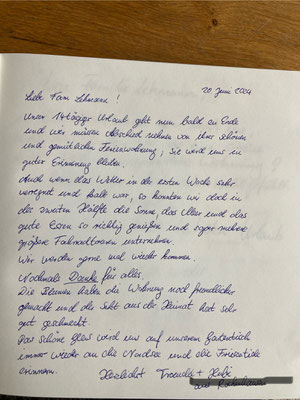 20 Juni 2024
Liebe Fam Lehmann !
Unser 14 tägiger Urlaub geht nun bald zu Ende
und wir müssen Abschied nehmen von Ihrer schönen
und gemütlichen Ferienwohnung, sie wird uns in
guter Erinnerung bleiben.
Auch wenn das Wetter in der ersten Woche sehr
verregnet und kalt war, so konnten wir doch in
der zweiten Hälfte die Sonne, das Meer und das
gute Essen so richtig genießen und sogar mehrere
größere Fahrradtouren unternehmen.
Wir werden gerne mal wieder kommen.
Nochmals Danke für alles.
Die Blumen haben die Wohnung noch freundlicher
gemacht und der Sekt aus der Heimat hat sehr
gut geschmeckt.
Das schöne Glas wird uns auf unserem Gartentisch
immer wieder an die Nordsee und die
erinnern.
Herzlichst +
aus